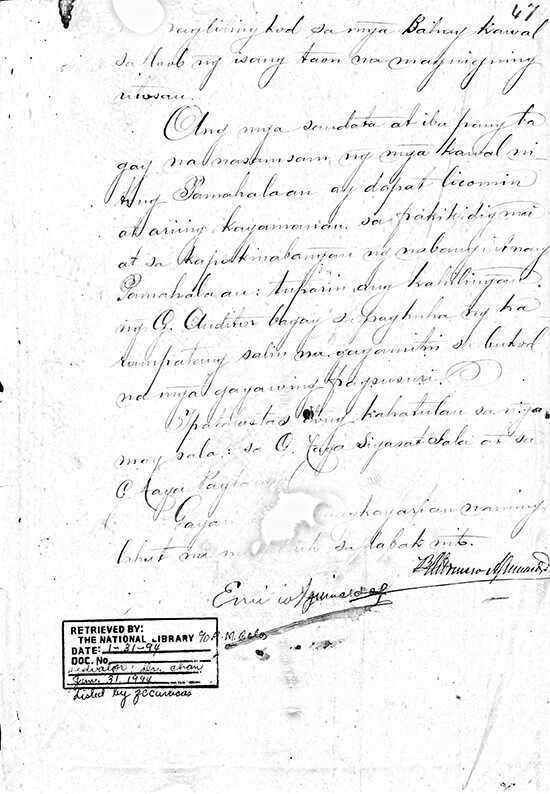 47
naglilingkod sa mga Bahay Kawal
sa loob ng isang taon na
utosan.
Ang mga sandata at iba pang ba
gay na nasamsam ng mga kawal ni-
tong Pamahalaan ay dapat licomin
at ariing kayamanan sa pakikidigmai
at sa kapakinabangan ng nabangit na
Pamahalaan: tuparin ang kahilingan
ng G. Auditor bagay sa pagkuha ng ka
rampatang salin na gagamitin sa bukod
na mga gagawing pagsusuri.
Ipatalastas itong kahatulan sa mga
may sala: sa G. Taga Siyasat Sala at sa
G taga
Gayari nagkayarian naming
lahat na sa labak nito.
Emilio Aguinaldo
RETRIEVED BY:
THE NATIONAL LIBRARY
DATE: 1-31-94
DOC. No.
Jan. 31, 1994
Listed by